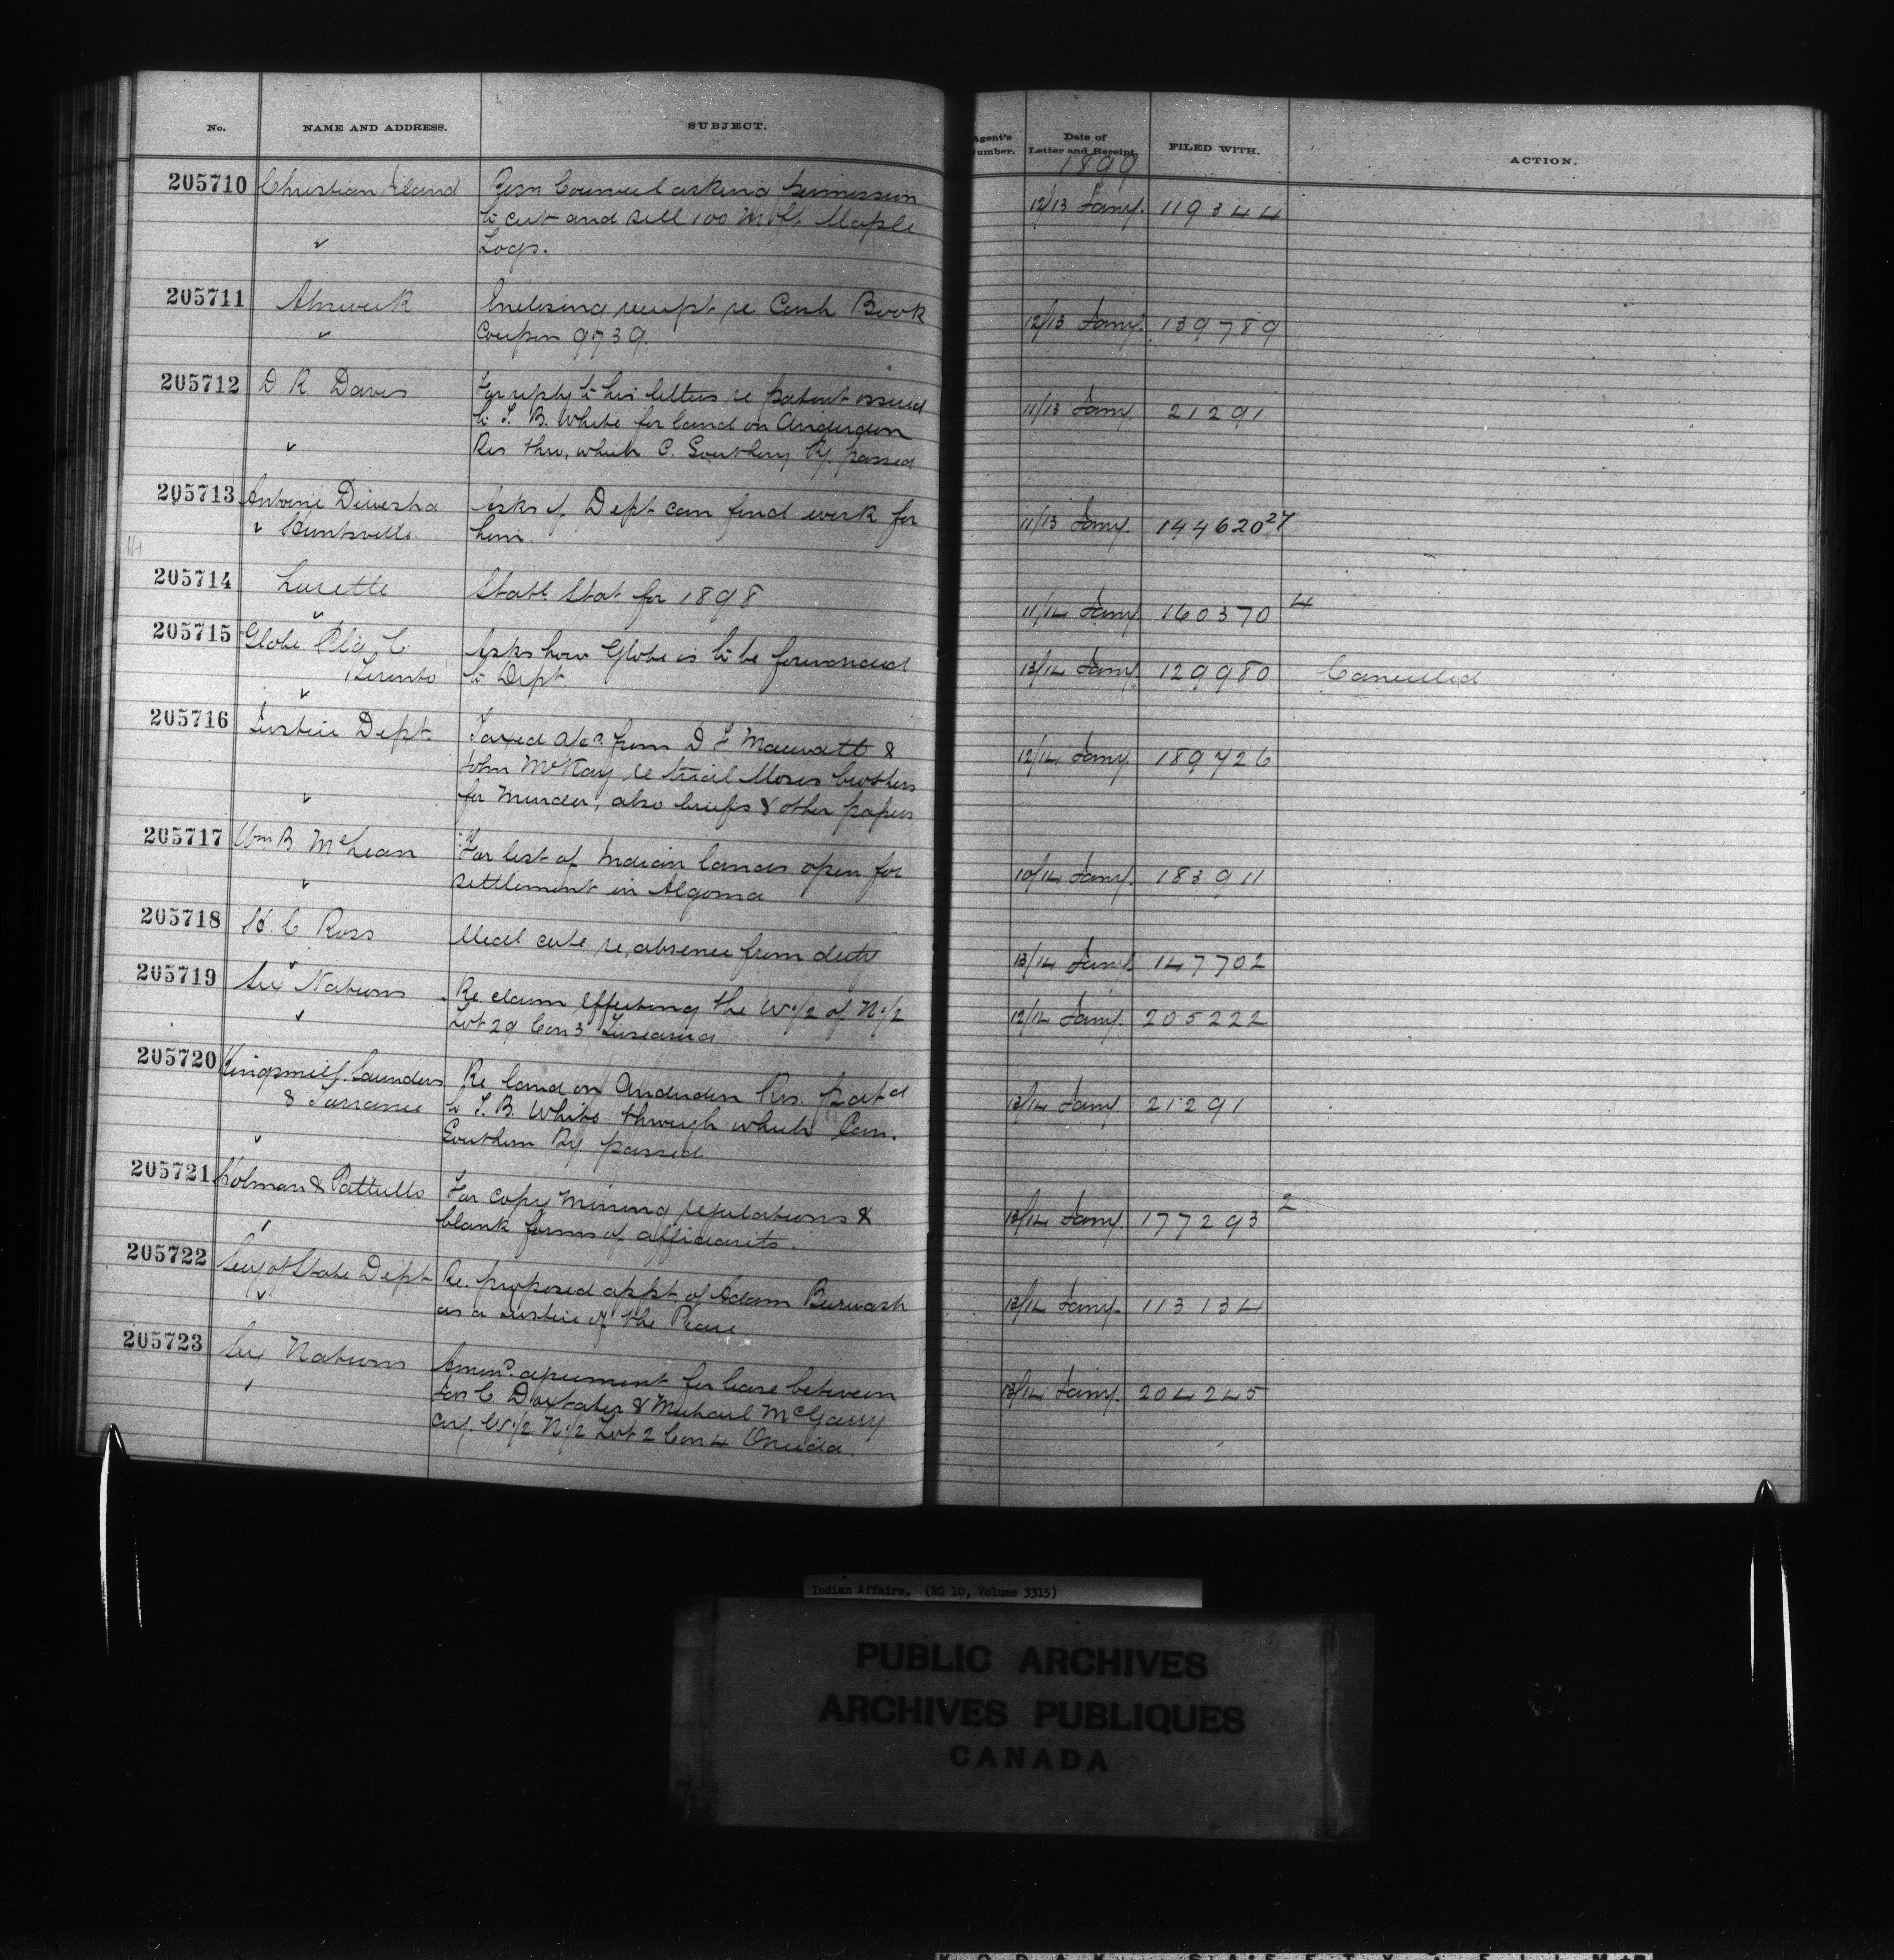 No. NAME AND ADDRESS. SUBJECT. Agent's Number. Date of Letter and Receipt. FILED WITH. ACTION.
1899
205710 Christian Island Resn Council asking permission 12/13 Jany. 119344
to cut and sell 100 M. ft. Maple
Logs.
205711 Alnwick Enclosing receipt re Cash Book 12/13 Jany. 139789
Coupon 9739.
205712 D R Davis For reply to his letters re patent issued 11/13 Jany. 21291
to T. B. White for land on Anderdon
Res thro, which C. Southern Ry. passed
205713 Antoine Asks if Dept can find work for 11/13 Jany. 144620 27
Huntsville him.
205714 Lorette Statl. Stat for 1898 11/14 Jany. 160370 4
205715 Globe Ptg. C. Asks how Globe is to be forwarded 13/14 Jany. 129980 Cancelled
Toronto to Dept.
205716 Justice Dept. Taxed a/cs. from D F & 12/14 Jany. 189726
John McKay re trial Moses brothers
for Murder, also briefs & other papers
205717 Wm B McLean For list of Indian lands open for 10/14 Jany. 183911
settlement in Algoma
205718 H. C Ross Medl certe re, absence from duty 13/14 Jany. 147702
205719 Six Nations Re claim effecting the W.1/2 of N.1/2 12/14 Jany. 205222
Lot 29 Con 3 Tuscarora
205720 Kingsmill, Saunders Re land on Anderdon Res. patd 13/14 Jany 21291
& Torrance to T. B. White through which Can.
Southern Ry passed
205721 Holman & Pattullo For copy mining regulations & 13/14 Jany. 177293 2
blank forms of affidavits.
205722 Secy of State Dept Re. proposed appt. of Adam Burwash 13/14 Jany. 113134
as a Justice of the Peace
205723 Six Nations Amend. agreement for lease between 13/14 Jany. 204245
Jas C. Doxtater & Michael McGarry
W.1/2 N.1/2 Lot 2 Con 4 Oneida.
Indian Affairs. (RG 10, Volume 3315)
PUBLIC ARCHIVES
ARCHIVES PUBLIQUES
CANADA